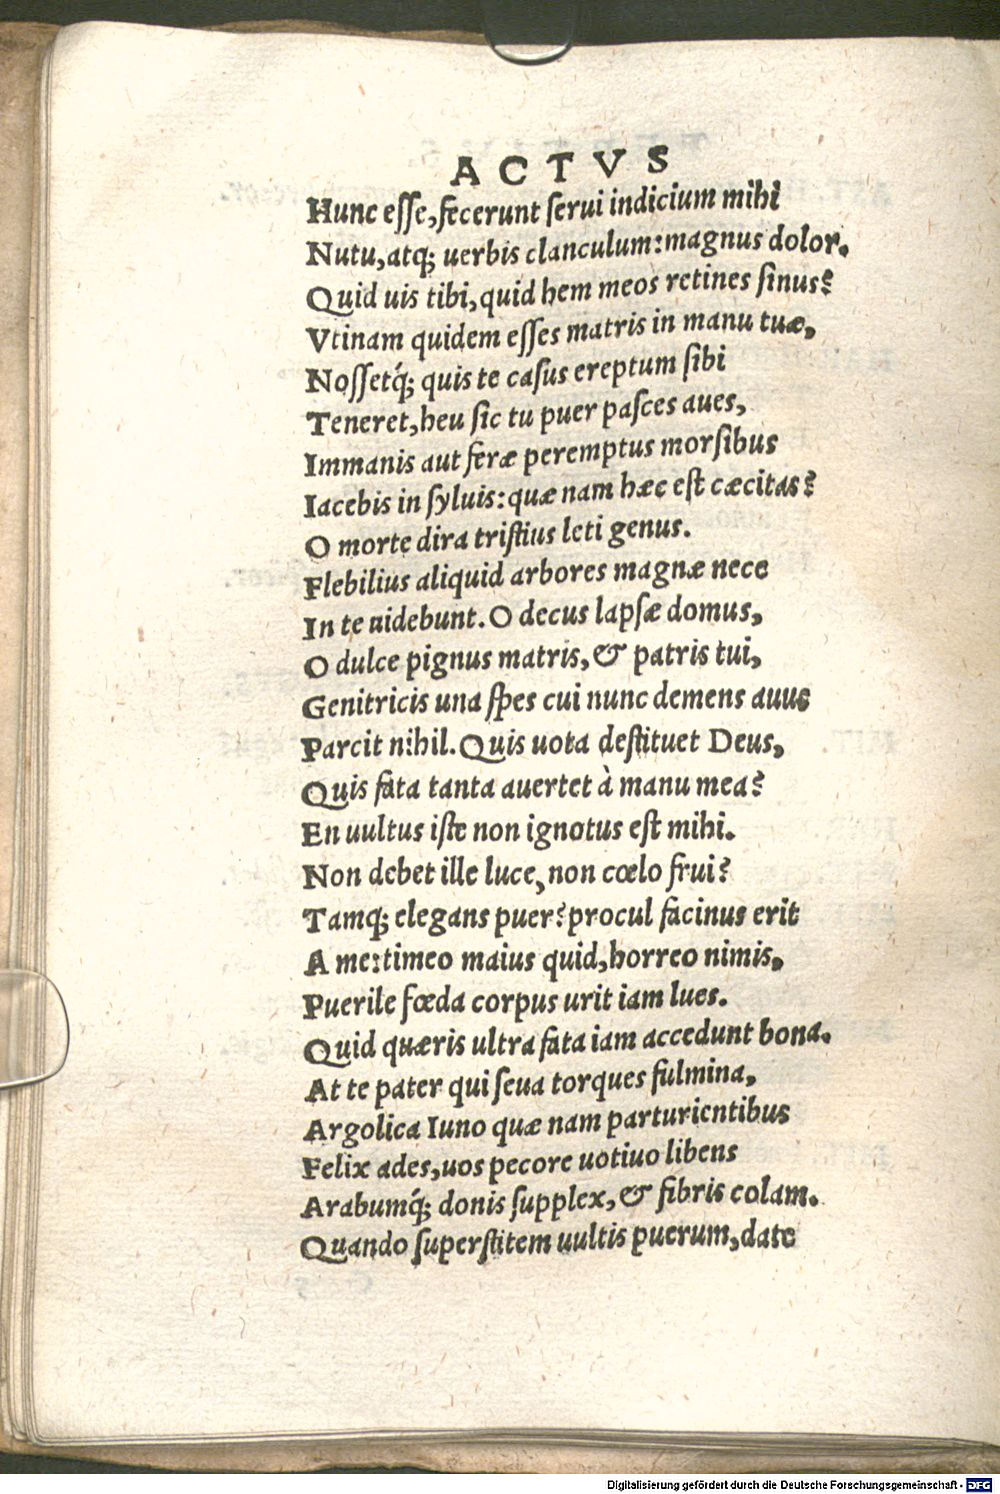 ACTVS
Hunc esse, fecerunt serui indicium mihi
Nutu, atq; uerbis clanculum: magnus dolor.
Quid uis tibi, quid hem meos retines sinus?
Vtinam quidem esses matris in manu tuæ,
Nossetq́; quis te casus ereptum sibi
Teneret, heu sic tu puer pasces aues,
Immanis aut feræ peremptus morsibus
Iacebis in syluis: quæ nam hæc est cæcitas?
O morte dira tristius leti genus.
Flebilius aliquid arbores magnæ nece
In te uidebunt. O decus lapsæ domus,
O dulce pignus matris, & patris tui,
Genitricis una spes cui nunc demens auus
Parcit nihil. Quis uota destituet Deus,
Quis fata tanta auertet à manu mea?
En uultus iste non ignotus est mihi.
Non debet ille luce, non cœlo frui?
Tamq; elegans puer? procul facinus erit
A me: timeo maius quid, horreo nimis,
Puerile fœda corpus urit iam lues.
Quid quæris ultra fata iam accedunt bona.
At te pater qui seua torques fulmina,
Argolica Iuno quæ nam parturientibus
Felix ades, uos pecore uotiuo libens
Arabumq́; donis supplex, & fibris colam.
Quando superstitem uultis puerum, date
Digitalisierung gefördert durch die Deutsche Forschungsgemeinschaft - DFG